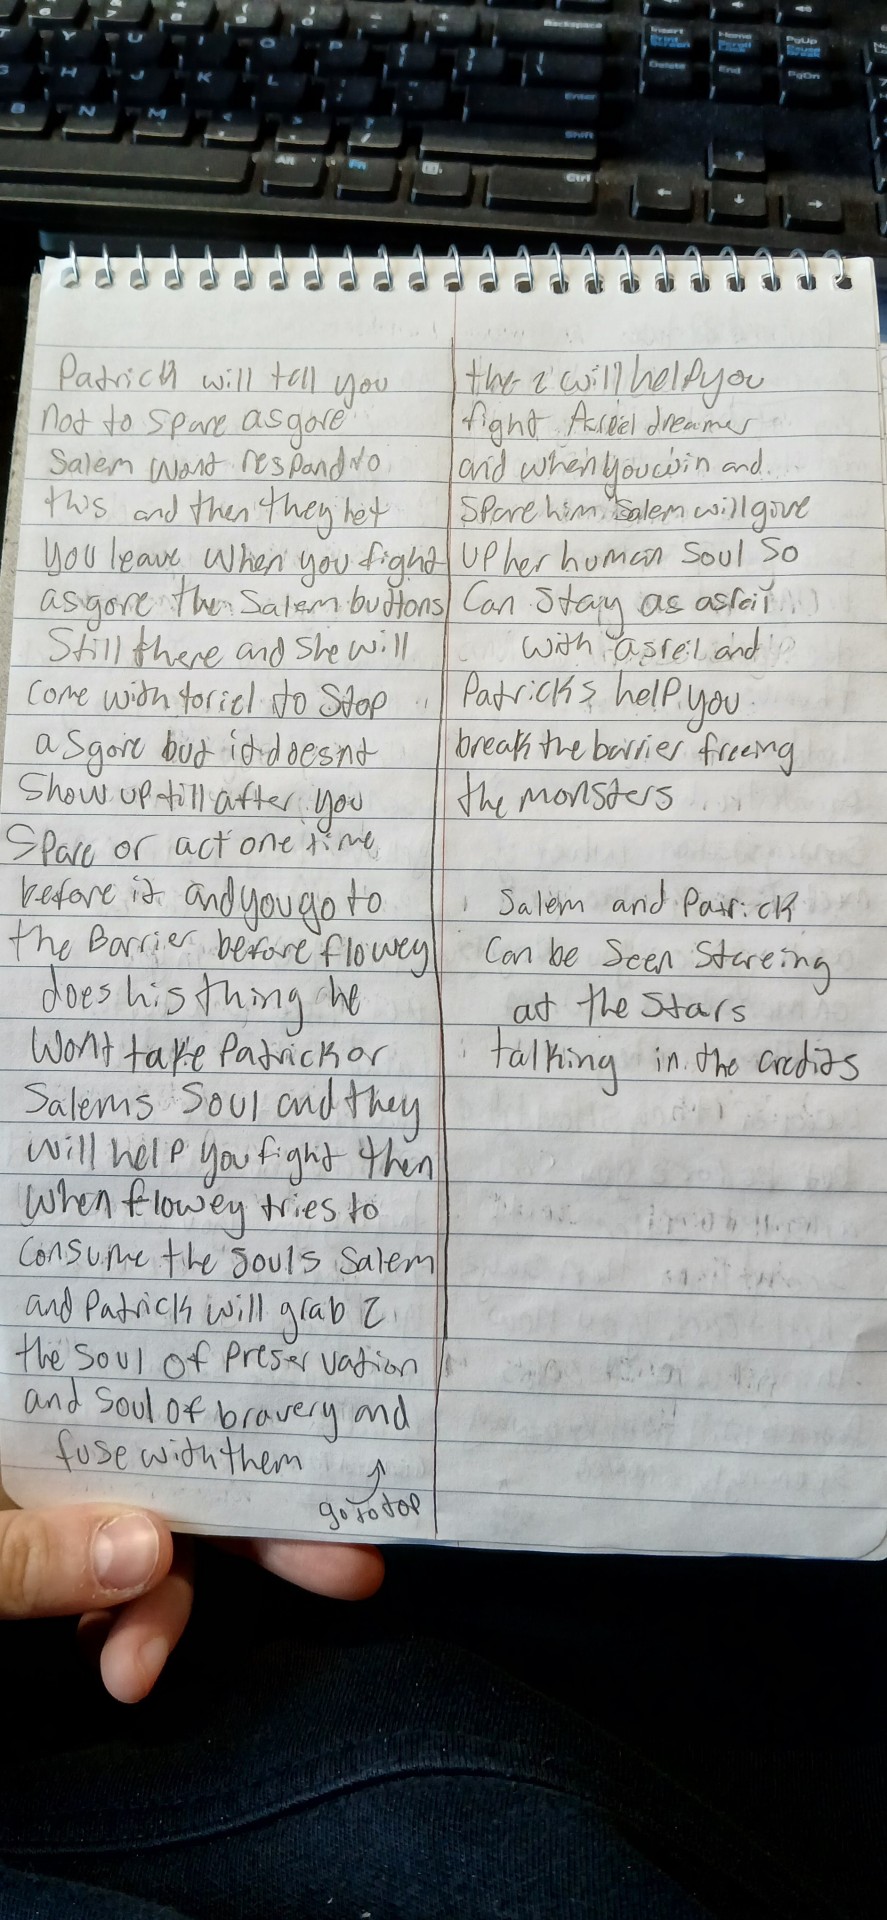 Backspace
Insert
Print Screen
Home
Scroll Lock
PgUp
Pause Break
T Y U I O P
Delete
End
PgDn
G H J K L
Enter
B N M
Shift
Alt
Fn
Ctrl
Patrick will tell you
not to spare asgore
Salem wont respand to
this and then they let
you leave when you fight
asgore the Salem buttons
Still there and she will
come with toriel to Stop
asgore but it doesnt
Show up till after you
Spare or act one time
before it and you go to
the Barrier before flowey
does his thing he
Wont take Patrick or
Salems Soul and they
will help you fight then
when flowey tries to
consume the souls Salem
and Patrick will grab 2
the soul of preservation
and soul of bravery and
fuse with them
go to top
the 2 will help you
fight Asreil dreamer
and when you win and
Spare him Salem will give
up her human soul So
Can Stay as
with asreil and
Patricks help you
break the barrier freeing
the monsters
Salem and Patrick
Can be Seen Stareing
at the Stars
talking in the credits